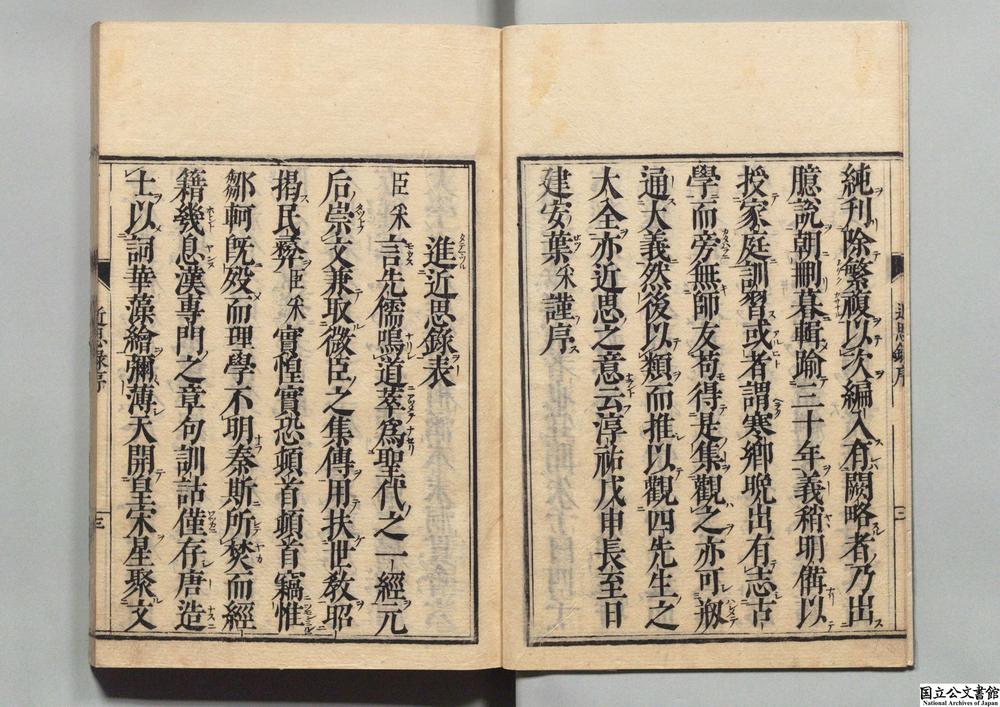 純刊除繁複以次編入有闕略者乃出
臆說朝刪暮輯踰三十年義稍明備以
授家庭訓習或者謂寒鄉晩出有志古
學而旁無師友苟得是集觀之亦可剏
通大義然後以類而推以觀四先生之
大全亦近思之意云淳祐戊申長至日
建安葉采謹序
近思錄序
三
進近思錄表
臣采言先儒鳴道萃爲聖代之一經元
后崇文兼取微臣之集傳用扶世敎昭
揭民彝臣采實惶實恐頓首頓首竊惟
鄒軻旣歿而理學不明秦斯所焚而經
籍幾息漢專門之章句訓詁僅存唐造
士以詞華藻繪彌薄天開皇宋星聚文
近思錄序
三
国立公文書館
National Archives of Japan